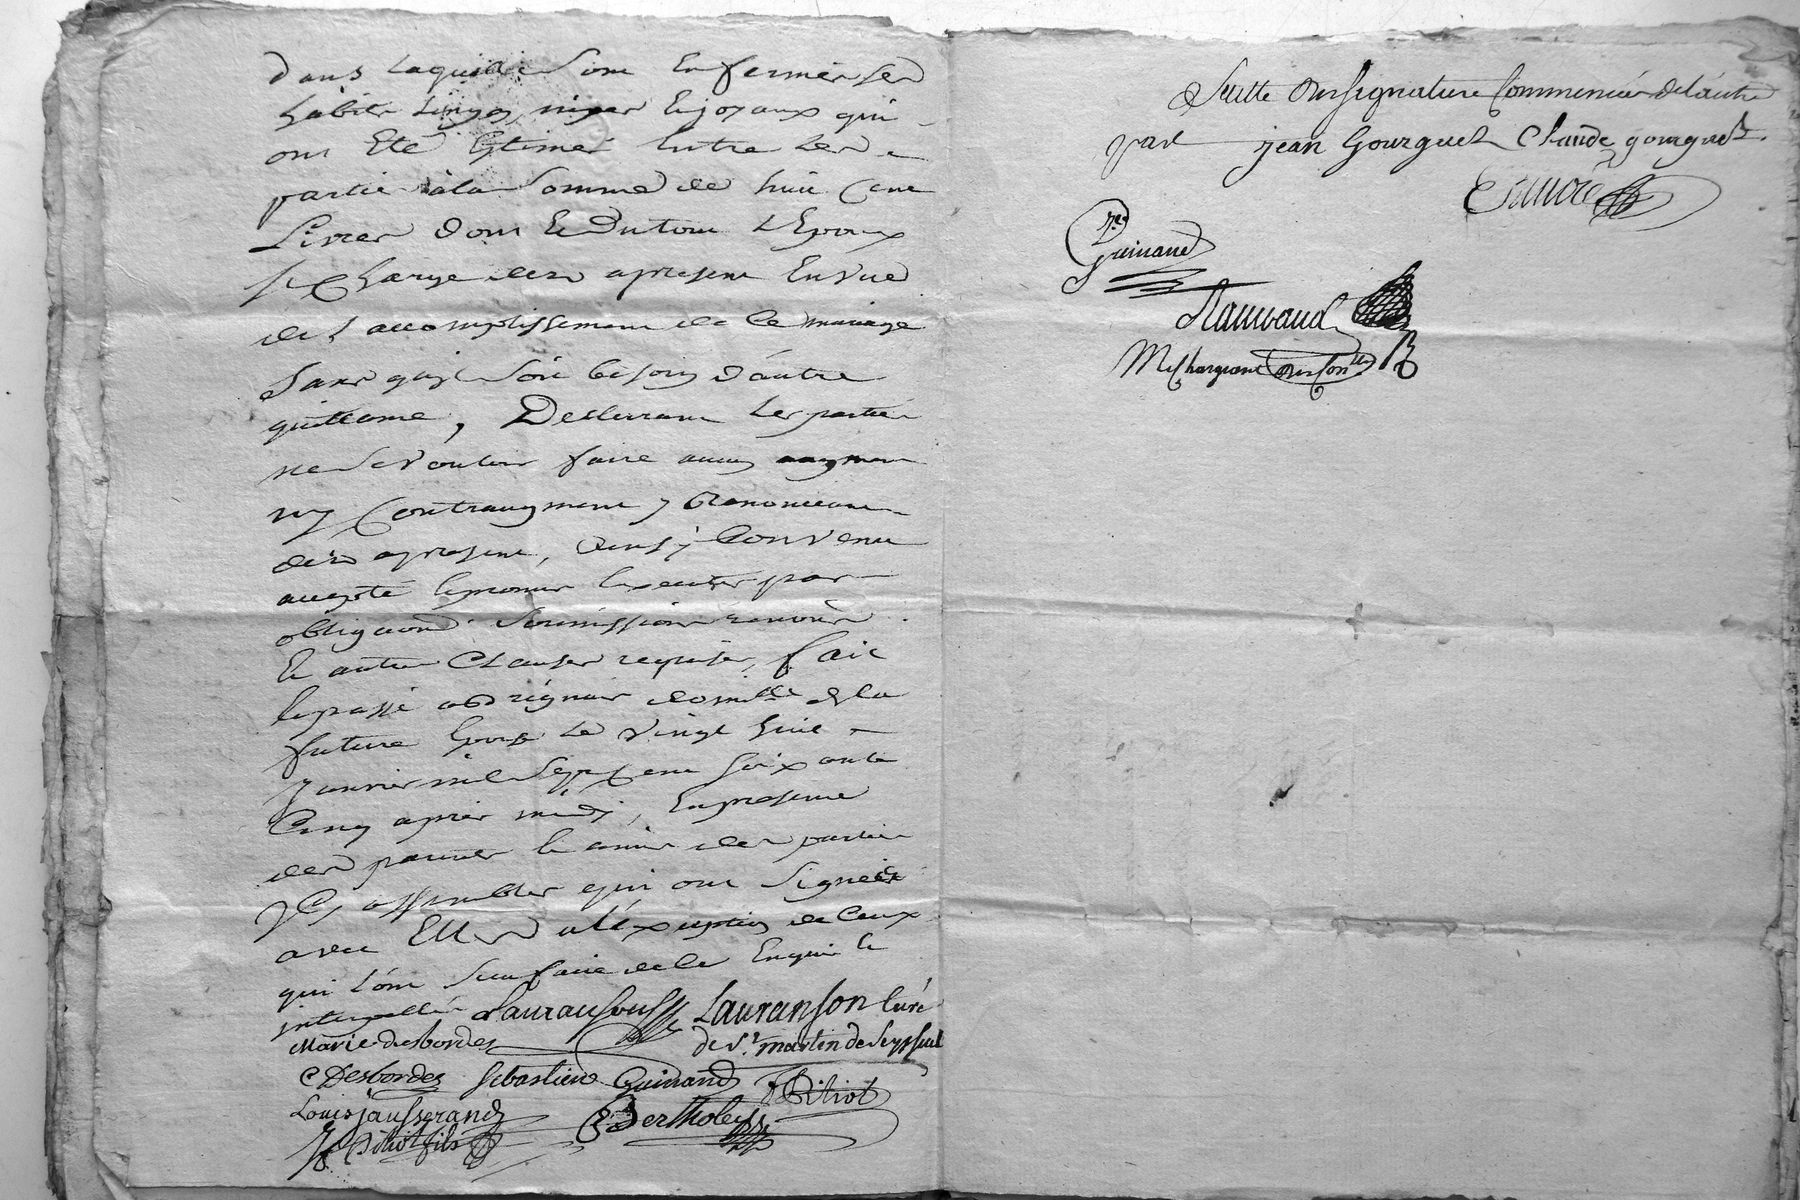 dans laquelle sont Enfermér ser
habits linger, niper Et joyaux qui
ont Eté Estimer Entre ler
partie à la somme de huit Cent
Livrer dont Et du tout L'Epoux
se Charge der apresent En vue
de l'accomplissement de Ce mariage
sans quil soit besoin d'autre
quittance, Declarant ler partie
ne vouloir faire aucun augment
ny Contraugment, Renonceant
der apresent, ainsi Convenu
accepté Et promis Executer par
obligaond. soumissions renonond
Et autre Clauser requiser, fait
Et passé domille de la
future Epouse Le vingt huit
Janvier mil Sept Cent soixante
Cinq apres midi, En presence
der parents Et amis der partie
assembler qui ont Signéer
avec Eller a l'exception de Ceux
qui l'ont sçu faire de Ce Enquis Et
interpellé Lauranson Lauranson Curé
Marie desbordes de St. martin de Seyssuel
C Desbordes Sebastien Guinand Pitiot
Louis jausserand Bertholey
Pitiot fils
Suitte des signature Commencée de l'autre
part jean Gourguet Claude gourguet
Guinand